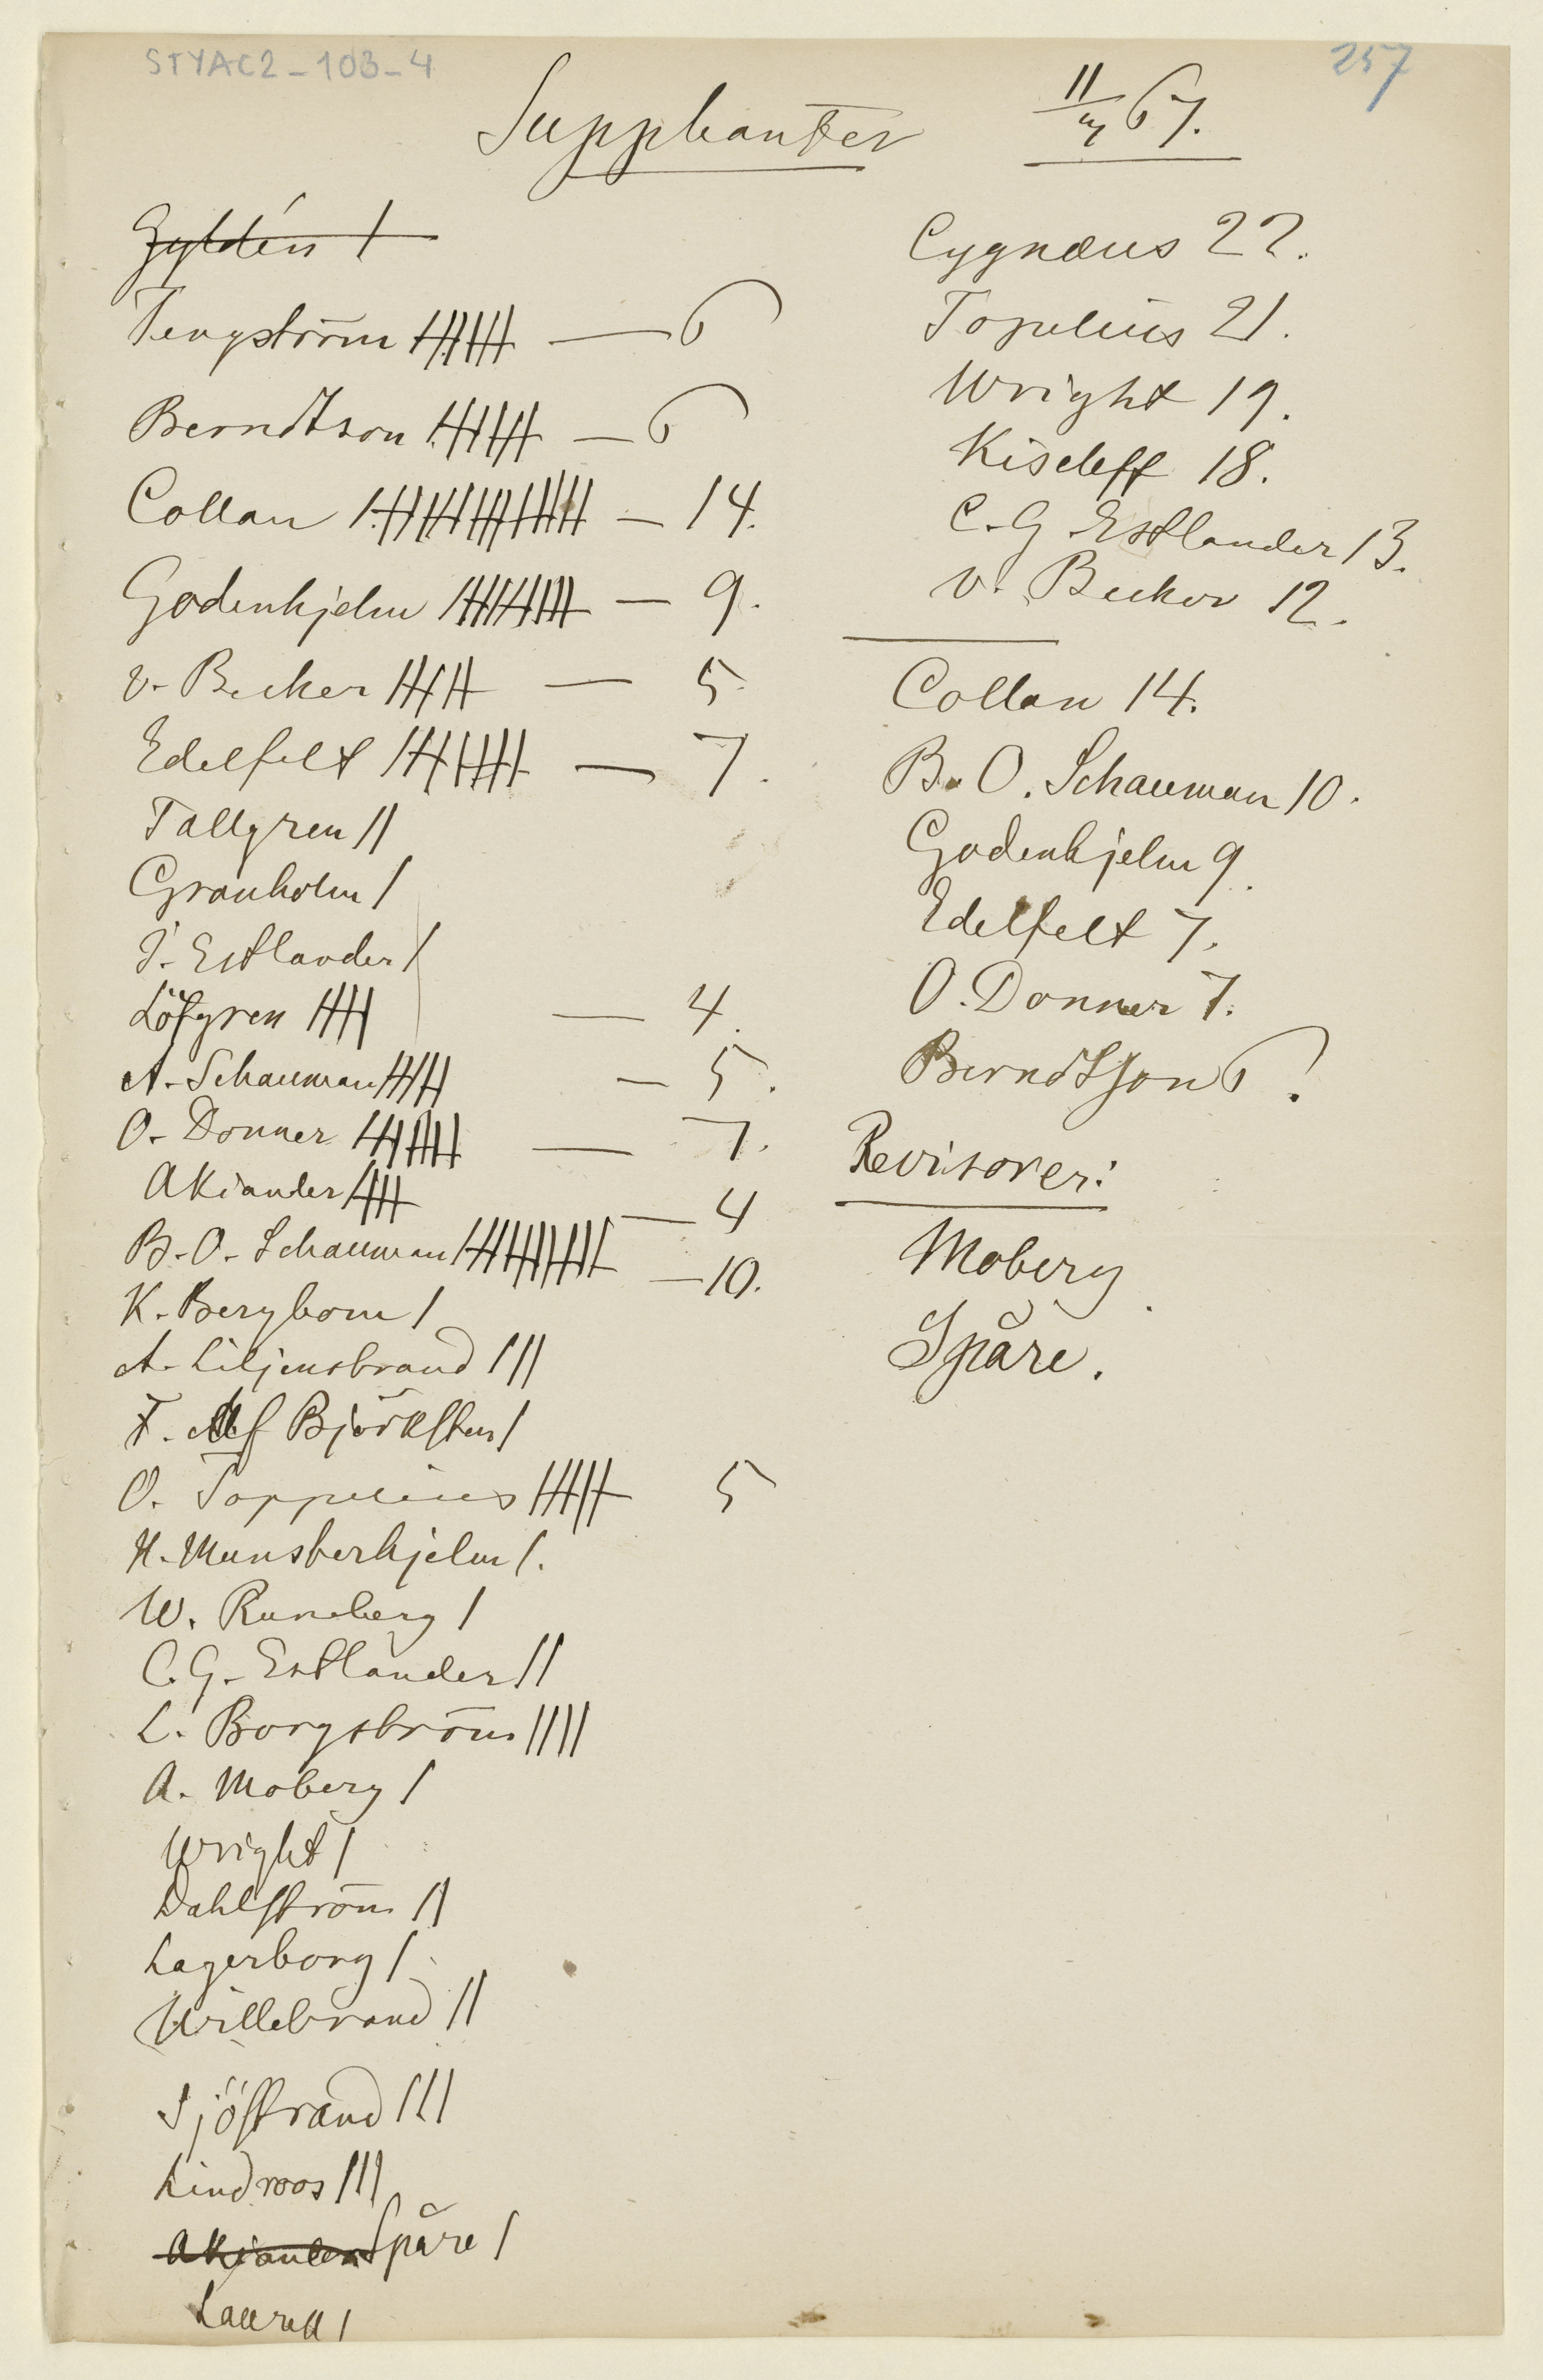 STYAC2-103-4
257
Suppleanter 11/14 67.
Gyldén /
Tengström //////  — 6
Berndtson ////// — 6
Collan ////////////// — 14.
Godenhjelm ///////// — 9.
v. Becker ///// — 5.
Edelfelt /////// — 7.
Tallgren //
Granholm /
J. Estlander /
Löfgren //// — 4.
A. Schauman ///// — 5.
O. Donner /////// — 7.
Akiander //// — 4
B. O. Schauman ////////// — 10.
K. Bergbom /
A. Liljenstrand ///
F. af Björksten /
O. Toppelius ///// 5
H. Munsterhjelm /.
W. Runeberg /
C. G. Estlander //
L. Borgström ////
A. Moberg /
Wright /
Dahlström //
Lagerborg /
Willebrand //
Sjöstrand ///
Lindroos ///
Akiander Spåre /
Laurell /
Cygnæus 22.
Topelius 21.
Wright 19.
Kiseleff 18.
C. G Estlander 13.
v. Becker 12.
Collan 14.
B. O. Schauman 10.
Godenhjelm 9.
Edelfelt 7.
O. Donner 7.
Berndtson 6.
Revisorer:
Moberg.
Spåre.